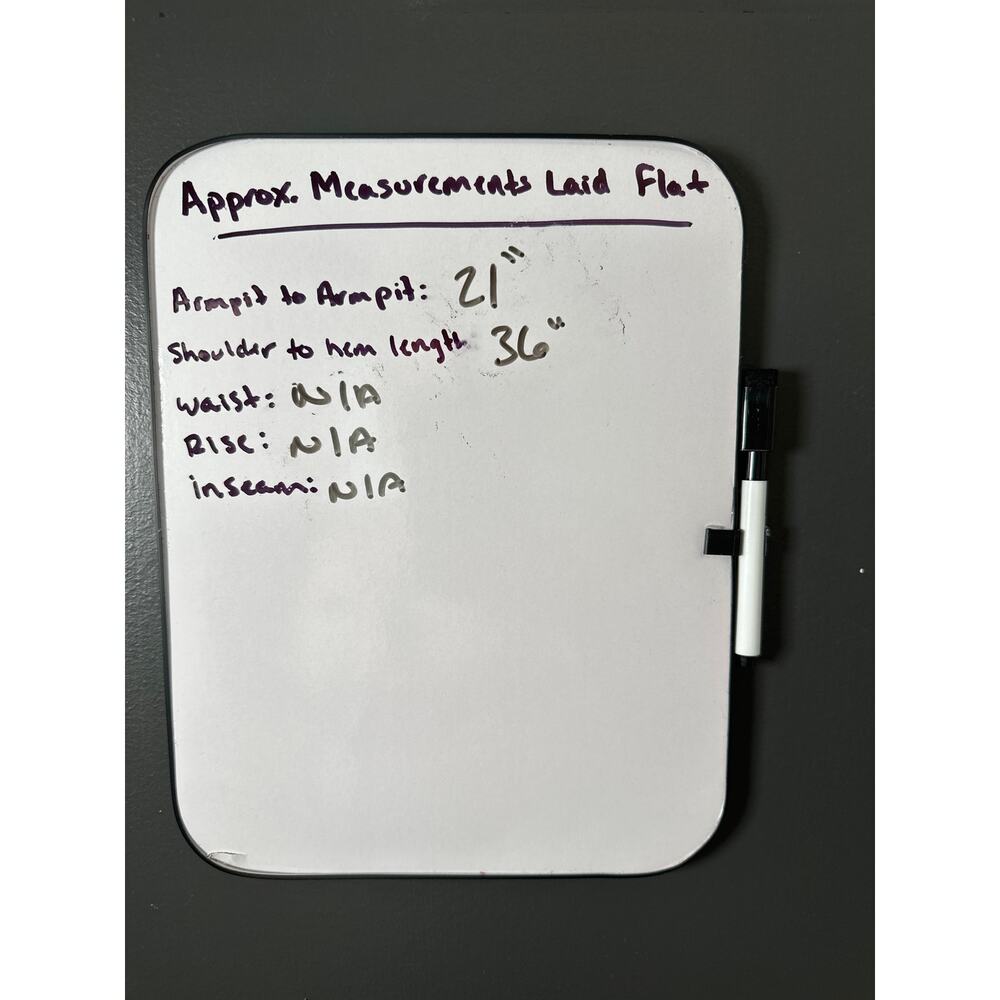 Approx. Measurements Laid Flat
Armpit to Armpit: 21"
Shoulder to hem length 36"
waist: N/A
Rise: N/A
inseam: N/A